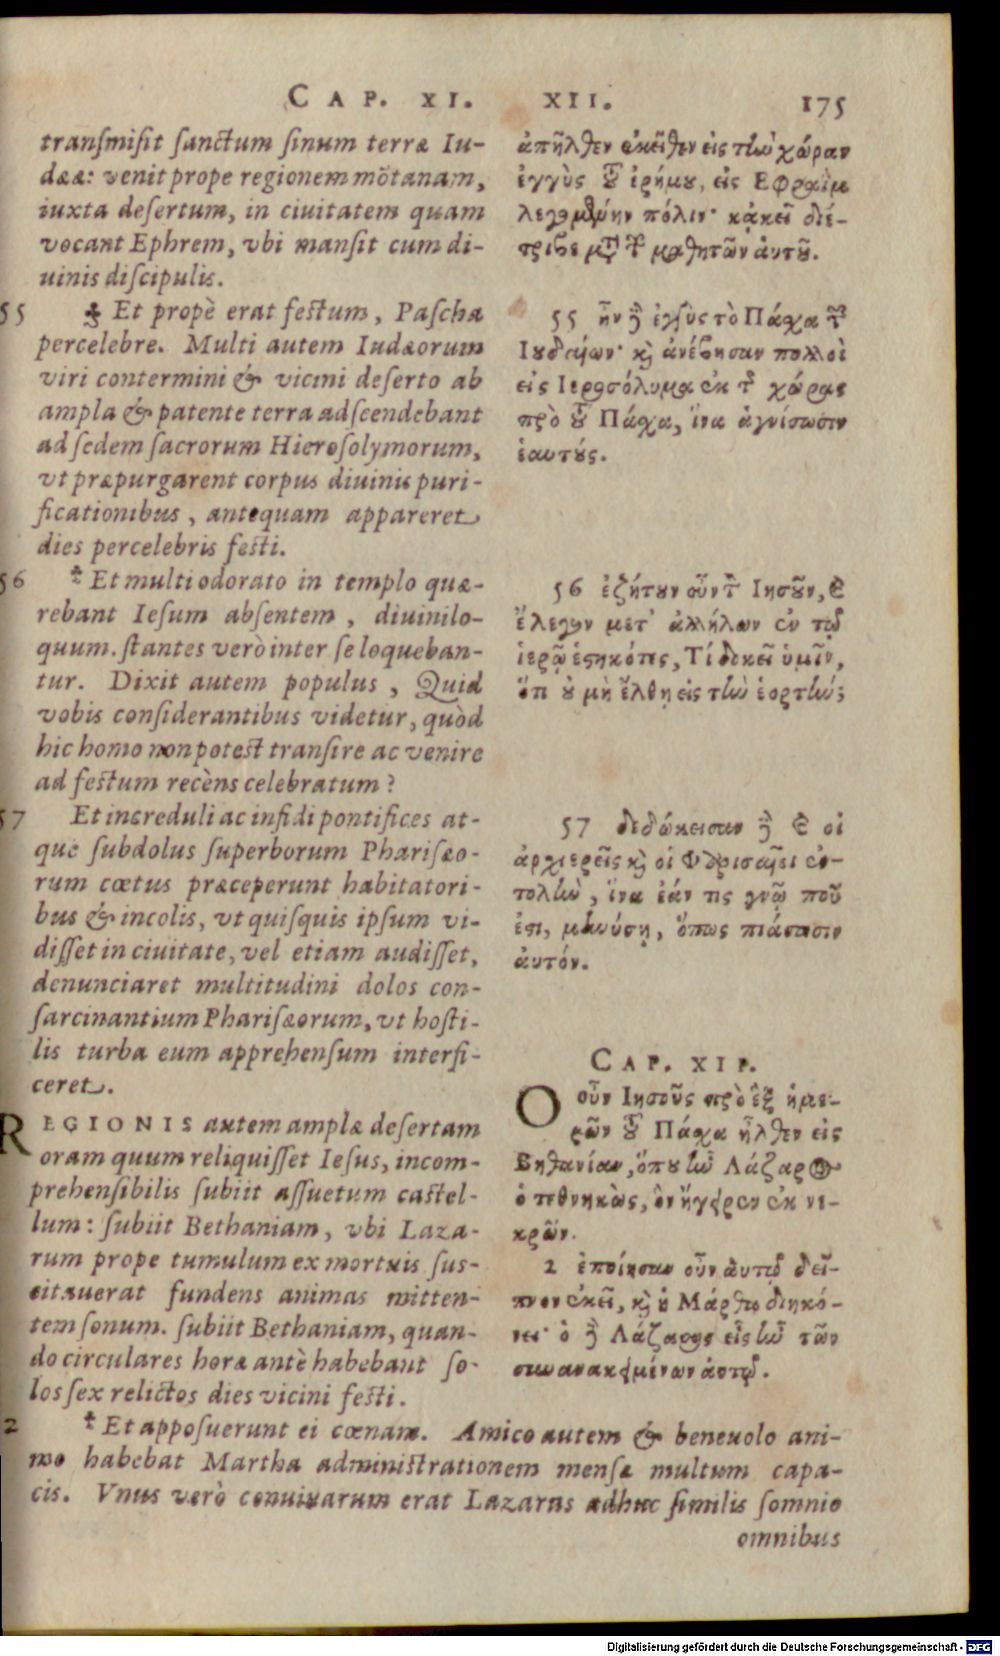 CAP. XI. XII. 175
tranſmiſit ſanctum ſinum terræ Iu-
dææ: venit prope regionem mōtanam,
iuxta deſertum, in ciuitatem quam
vocant Ephrem, vbi manſit cum di-
uinis diſcipulis.
55 Et propè erat feſtum, Paſcha
percelebre. Multi autem Iudæorum
viri contermini & vicini deſerto ab
ampla & patente terra adſcendebant
ad ſedem ſacrorum Hieroſolymorum,
vt præpurgarent corpus diuinis puri-
ficationibus, antequam appareret
dies percelebris feſti.
56 Et multi odorato in templo quæ-
rebant Ieſum abſentem, diuinilo-
quum. ſtantes verò inter ſe loqueban-
tur. Dixit autem populus, Quid
vobis conſiderantibus videtur, quòd
hic homo non poteſt tranſire ac venire
ad feſtum recèns celebratum?
57 Et increduli ac infidi pontifices at-
que ſubdolus ſuperborum Phariſæo-
rum cœtus præceperunt habitatori-
bus & incolis, vt quiſquis ipſum vi-
diſſet in ciuitate, vel etiam audiſſet,
denunciaret multitudini dolos con-
ſarcinantium Phariſæorum, vt hoſti-
lis turba eum apprehenſum interfi-
ceret.
REGIONIS autem amplæ deſertam
oram quum reliquiſſet Ieſus, incom-
prehenſibilis ſubiit aſſuetum caſtel-
lum: ſubiit Bethaniam, vbi Laza-
rum prope tumulum ex mortuis ſuſ-
citauerat fundens animas mitten-
tem ſonum. ſubiit Bethaniam, quan-
do circulares horæ antè habebant ſo-
los ſex relictos dies vicini feſti.
ἀπῆλθεν ἐκεῖθεν εἰς τὴν χώραν
ἐγγὺς τοῦ ἐρήμου, εἰς Εφραῒμ
λεγομένην πόλιν· κᾀκεῖ διέ-
τριβε μετὰ τῶν μαθητῶν ἁυτοῦ.
55 ἦν δὲ ἐγγὺς τὸ Πάσχα τῶν
Ιουδαίων· καὶ ἀνέβησαν πολλοὶ
εἰς Ιεροσόλυμα ἐκ τῆς χώρας
πρὸ τοῦ Πάσχα, ἵνα ἁγνίσωσιν
ἑαυτούς.
56 ἐζήτουν οὖν τὸν Ιησοῦν, καὶ
ἔλεγον μετ' ἀλλήλων ἐν τῷ
ἱερῷ ἑστηκότες, Τί δοκεῖ ὑμῖν,
ὅτι οὐ μὴ ἔλθη εἰς τὴν ἑορτήν;
57 δεδώκεισαν δὲ καὶ οἱ
ἀρχιερεῖς καὶ οἱ Φαρισαῖοι ἐν-
τολὴν, ἵνα ἐάν τις γνῷ ποῦ
ἐστι, μηνύσῃ, ὅπως πιάσωσιν
ἀυτόν.
CAP. XII.
Ο οὖν Ιησοῦς πρὸ ἓξ ἡμε-
ρῶν τοῦ Πάσχα ἦλθεν εἰς
Βηθανίαν, ὅπου ἦν Λάζαρος
ὁ τεθνηκὼς, ὃν ἤγειρεν ἐκ νε-
κρῶν.
2 ἐποίησαν οὖν ἀυτῷ δεῖ-
πνον ἐκεῖ, καὶ ἡ Μάρθα διηκό-
νει· ὁ δὲ Λάζαρος εἷς ἦν τῶν
συνανακειμένων ἀυτῷ.
2 Et appoſuerunt ei cœnam. Amico autem & beneuolo ani-
mo habebat Martha adminiſtrationem menſæ multum capa-
cis. Vnus verò conuiuarum erat Lazarus adhuc ſimilis ſomnio
omnibus
Digitalisierung gefördert durch die Deutsche Forschungsgemeinschaft - DFG